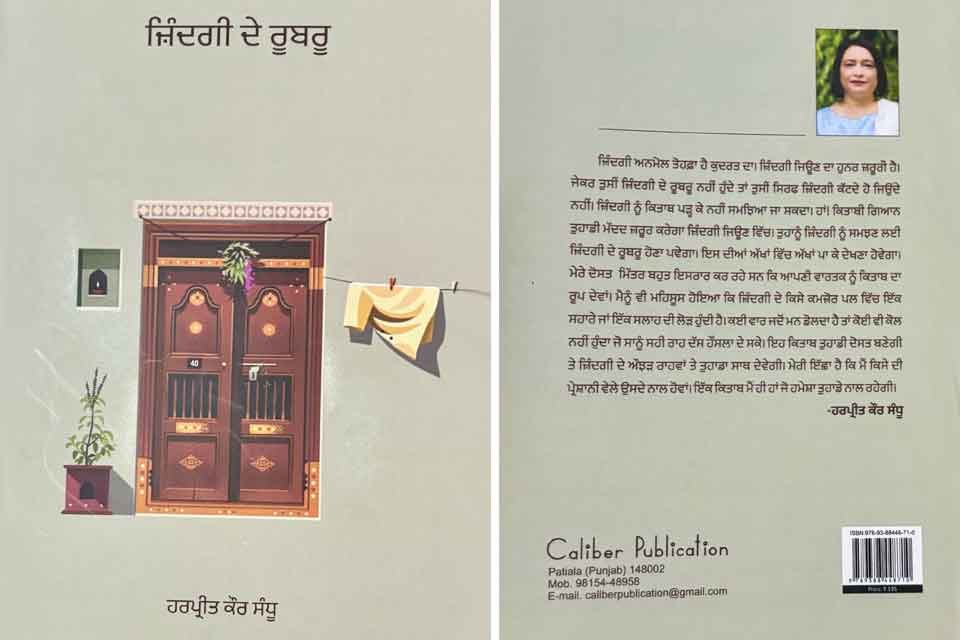 ਜ਼ਿੰਦਗੀ ਦੇ ਰੂਬਰੂ
40
ਹਰਪ੍ਰੀਤ ਕੌਰ ਸੰਧੂ
ਜ਼ਿੰਦਗੀ ਅਨਮੋਲ ਤੋਹਫ਼ਾ ਹੈ ਕੁਦਰਤ ਦਾ। ਜ਼ਿੰਦਗੀ ਜਿਊਣ ਦਾ ਹੁਨਰ ਜ਼ਰੂਰੀ ਹੈ।
ਜੇਕਰ ਤੁਸੀਂ ਜ਼ਿੰਦਗੀ ਦੇ ਰੂਬਰੂ ਨਹੀਂ ਹੁੰਦੇ ਤਾਂ ਤੁਸੀਂ ਸਿਰਫ ਜ਼ਿੰਦਗੀ ਕੱਟਦੇ ਹੋ ਜਿਉਂਦੇ
ਨਹੀਂ। ਜ਼ਿੰਦਗੀ ਨੂੰ ਕਿਤਾਬ ਪੜ੍ਹ ਕੇ ਨਹੀਂ ਸਮਝਿਆ ਜਾ ਸਕਦਾ। ਹਾਂ। ਕਿਤਾਬੀ ਗਿਆਨ
ਤੁਹਾਡੀ ਮੱਦਦ ਜ਼ਰੂਰ ਕਰੇਗਾ ਜ਼ਿੰਦਗੀ ਜਿਊਣ ਵਿੱਚ। ਤੁਹਾਨੂੰ ਜ਼ਿੰਦਗੀ ਨੂੰ ਸਮਝਣ ਲਈ
ਜ਼ਿੰਦਗੀ ਦੇ ਰੂਬਰੂ ਹੋਣਾ ਪਵੇਗਾ। ਇਸ ਦੀਆਂ ਅੱਖਾਂ ਵਿੱਚ ਅੱਖਾਂ ਪਾ ਕੇ ਦੇਖਣਾ ਹੋਵੇਗਾ।
ਮੇਰੇ ਦੋਸਤ ਮਿੱਤਰ ਬਹੁਤ ਇਸਰਾਰ ਕਰ ਰਹੇ ਸਨ ਕਿ ਆਪਣੀ ਵਾਰਤਕ ਨੂੰ ਕਿਤਾਬ ਦਾ
ਰੂਪ ਦੇਵਾਂ। ਮੈਨੂੰ ਵੀ ਮਹਿਸੂਸ ਹੋਇਆ ਕਿ ਜ਼ਿੰਦਗੀ ਦੇ ਕਿਸੇ ਕਮਜ਼ੋਰ ਪਲ ਵਿੱਚ ਇੱਕ
ਸਹਾਰੇ ਜਾਂ ਇੱਕ ਸਲਾਹ ਦੀ ਲੋੜ ਹੁੰਦੀ ਹੈ। ਕਈ ਵਾਰ ਜਦੋਂ ਮਨ ਡੋਲਦਾ ਹੈ ਤਾਂ ਕੋਈ ਵੀ ਕੋਲ
ਨਹੀਂ ਹੁੰਦਾ ਜੋ ਸਾਨੂੰ ਸਹੀ ਰਾਹ ਦੱਸ ਹੌਂਸਲਾ ਦੇ ਸਕੇ। ਇਹ ਕਿਤਾਬ ਤੁਹਾਡੀ ਦੋਸਤ ਬਣੇਗੀ
ਤੇ ਜ਼ਿੰਦਗੀ ਦੇ ਔਝੜ ਰਾਹਵਾਂ ਤੇ ਤੁਹਾਡਾ ਸਾਥ ਦੇਵੇਗੀ। ਮੇਰੀ ਇੱਛਾ ਹੈ ਕਿ ਮੈਂ ਕਿਸੇ ਦੀ
ਪ੍ਰੇਸ਼ਾਨੀ ਵੇਲੇ ਉਸਦੇ ਨਾਲ ਹੋਵਾਂ। ਇੱਕ ਕਿਤਾਬ ਮੈਂ ਹੀ ਹਾਂ ਜੋ ਹਮੇਸ਼ਾ ਤੁਹਾਡੇ ਨਾਲ ਰਹੇਗੀ।
-ਹਰਪ੍ਰੀਤ ਕੌਰ ਸੰਧੂ
Caliber Publication
Patiala (Punjab) 148002
Mob. 98154-48958
E-mail. caliberpublication@gmail.com
ISBN:978-93-88446-71-0
9 789388 446710